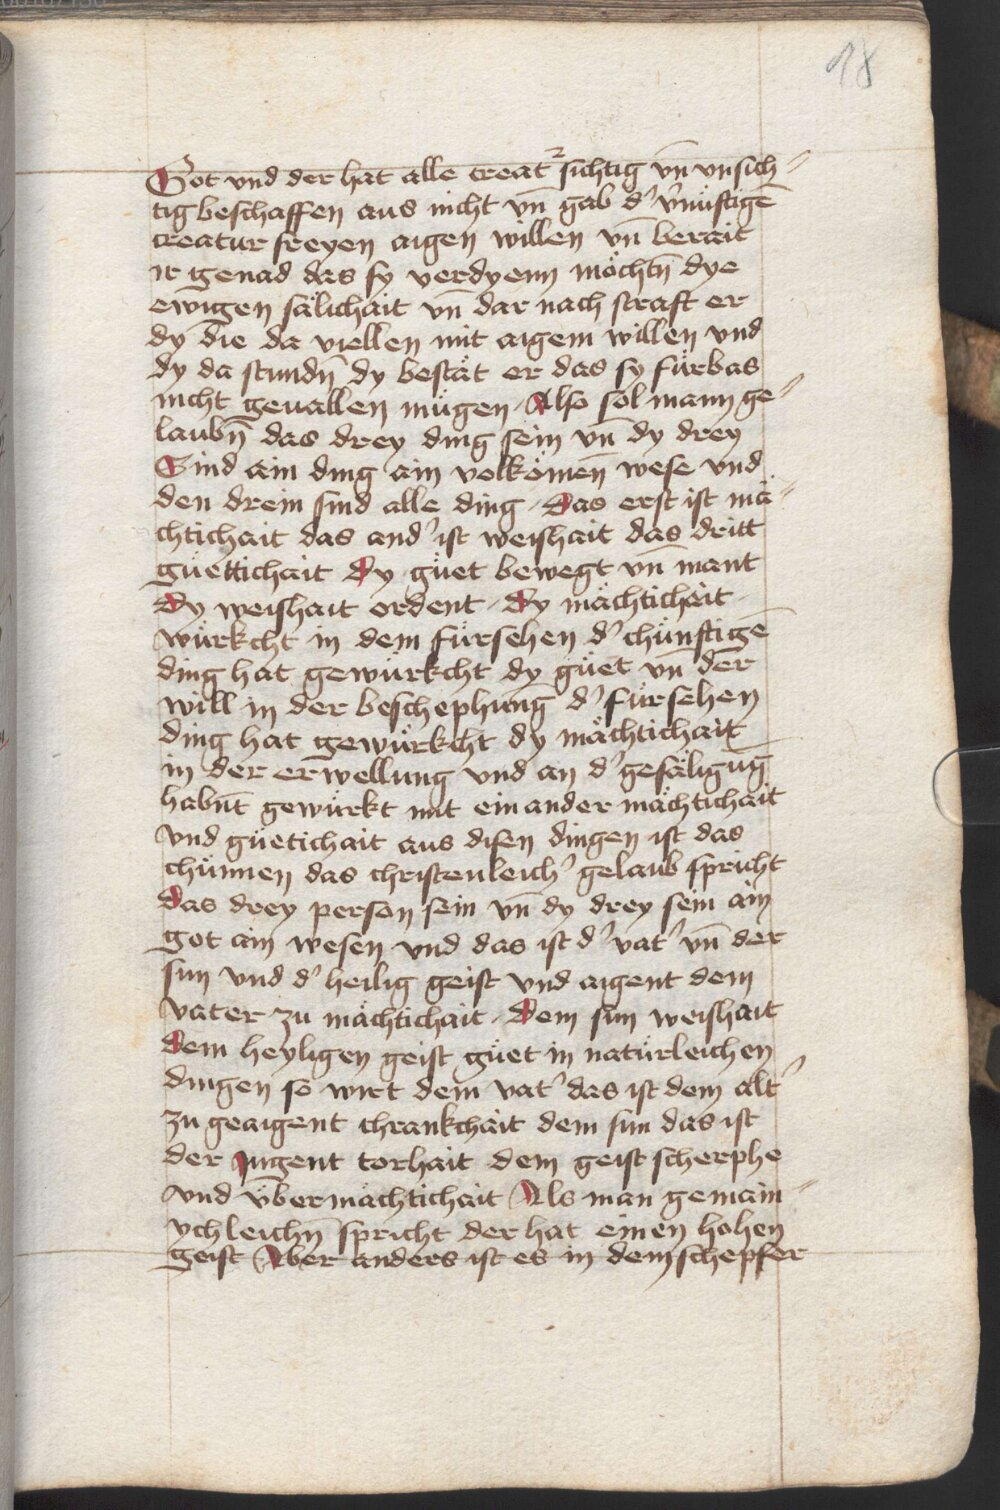 18
Got vnd der hat alle creat² sichtig vn̄ vnsich⸗
tig beschaffen aus nicht vn̄ gab d' v'nüftigē
creatur freyen aigen willen vn̄ berait
ir genad das sy verdyenn möchtn̄ dye
ewigen sälichait vn̄ dar nach straft er
dy die da viellen mit aigem willen vnd
dy da stundn̄ dy bestät er das sy fürbas
nicht geuallen mügen Also sol mann ge⸗
laubn̄ das drey ding sein vn̄ dy drey
Sind ain ding ain volkömen̄ wese vnd
den drein sind alle ding Das erst ist mä⸗
chtichait das and' ist weishait das dritt
güettichait Dy güet bewegt vn̄ mant
Dy weishait ordent Dy mächtichait
würkcht in dem fürsehen d' chünftigē
ding hat gewürkcht dy güet vn̄ der
will in der beschephung d' fürsehen
ding hat gewürkcht dy mächtichait
in der erwellung vnd an d' gesäligūg
habnt̄ gewürkt mit ein ander mächtichait
vnd güetichait aus disen dingen ist das
chümen das christenleich' gelaub spricht
Das drey person sein vn̄ dy drey sein ain
got ain wesen vnd das ist d' vat' vn̄ der
sun vnd d' heilig geist vnd aigent dem
vater zu mächtichait Dem sun weishait
Dem heyligen geist güet in natürleichen
dingen so wirt dem vat' das ist dem alt'
zu geaigent chrankchait dem sun das ist
der Jugent torhait dem geist scherphe
vnd übermächtichait Als man gemain⸗
ychleichn̄ spricht der hat einen hohen
geist Aber anders ist es in dem schepfer